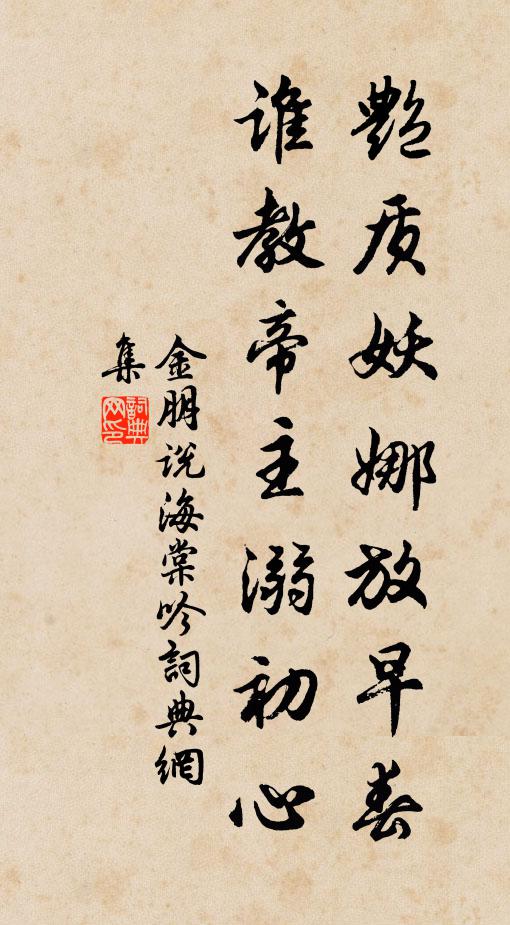 艷质妖娜放早春
谁教帝主溺初心
金朋说海棠吟詞典網
集
詞典
网印